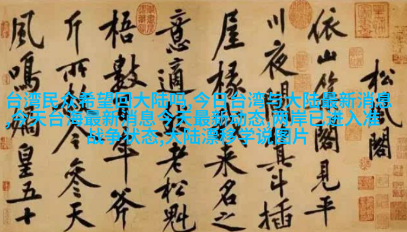 台湾民众希望回大陆吗,今日台湾与大陆最新消息
,今天台海最新消息今天最新动态,两岸已进入准
战争状态,大陆漂移学说图片
松風閣
依山築閣見平
川夜闌箕斗插
屋椽我來名之
意適然老松魁
梧數百年斧
斤所赦今參天
風鳴媧皇五十